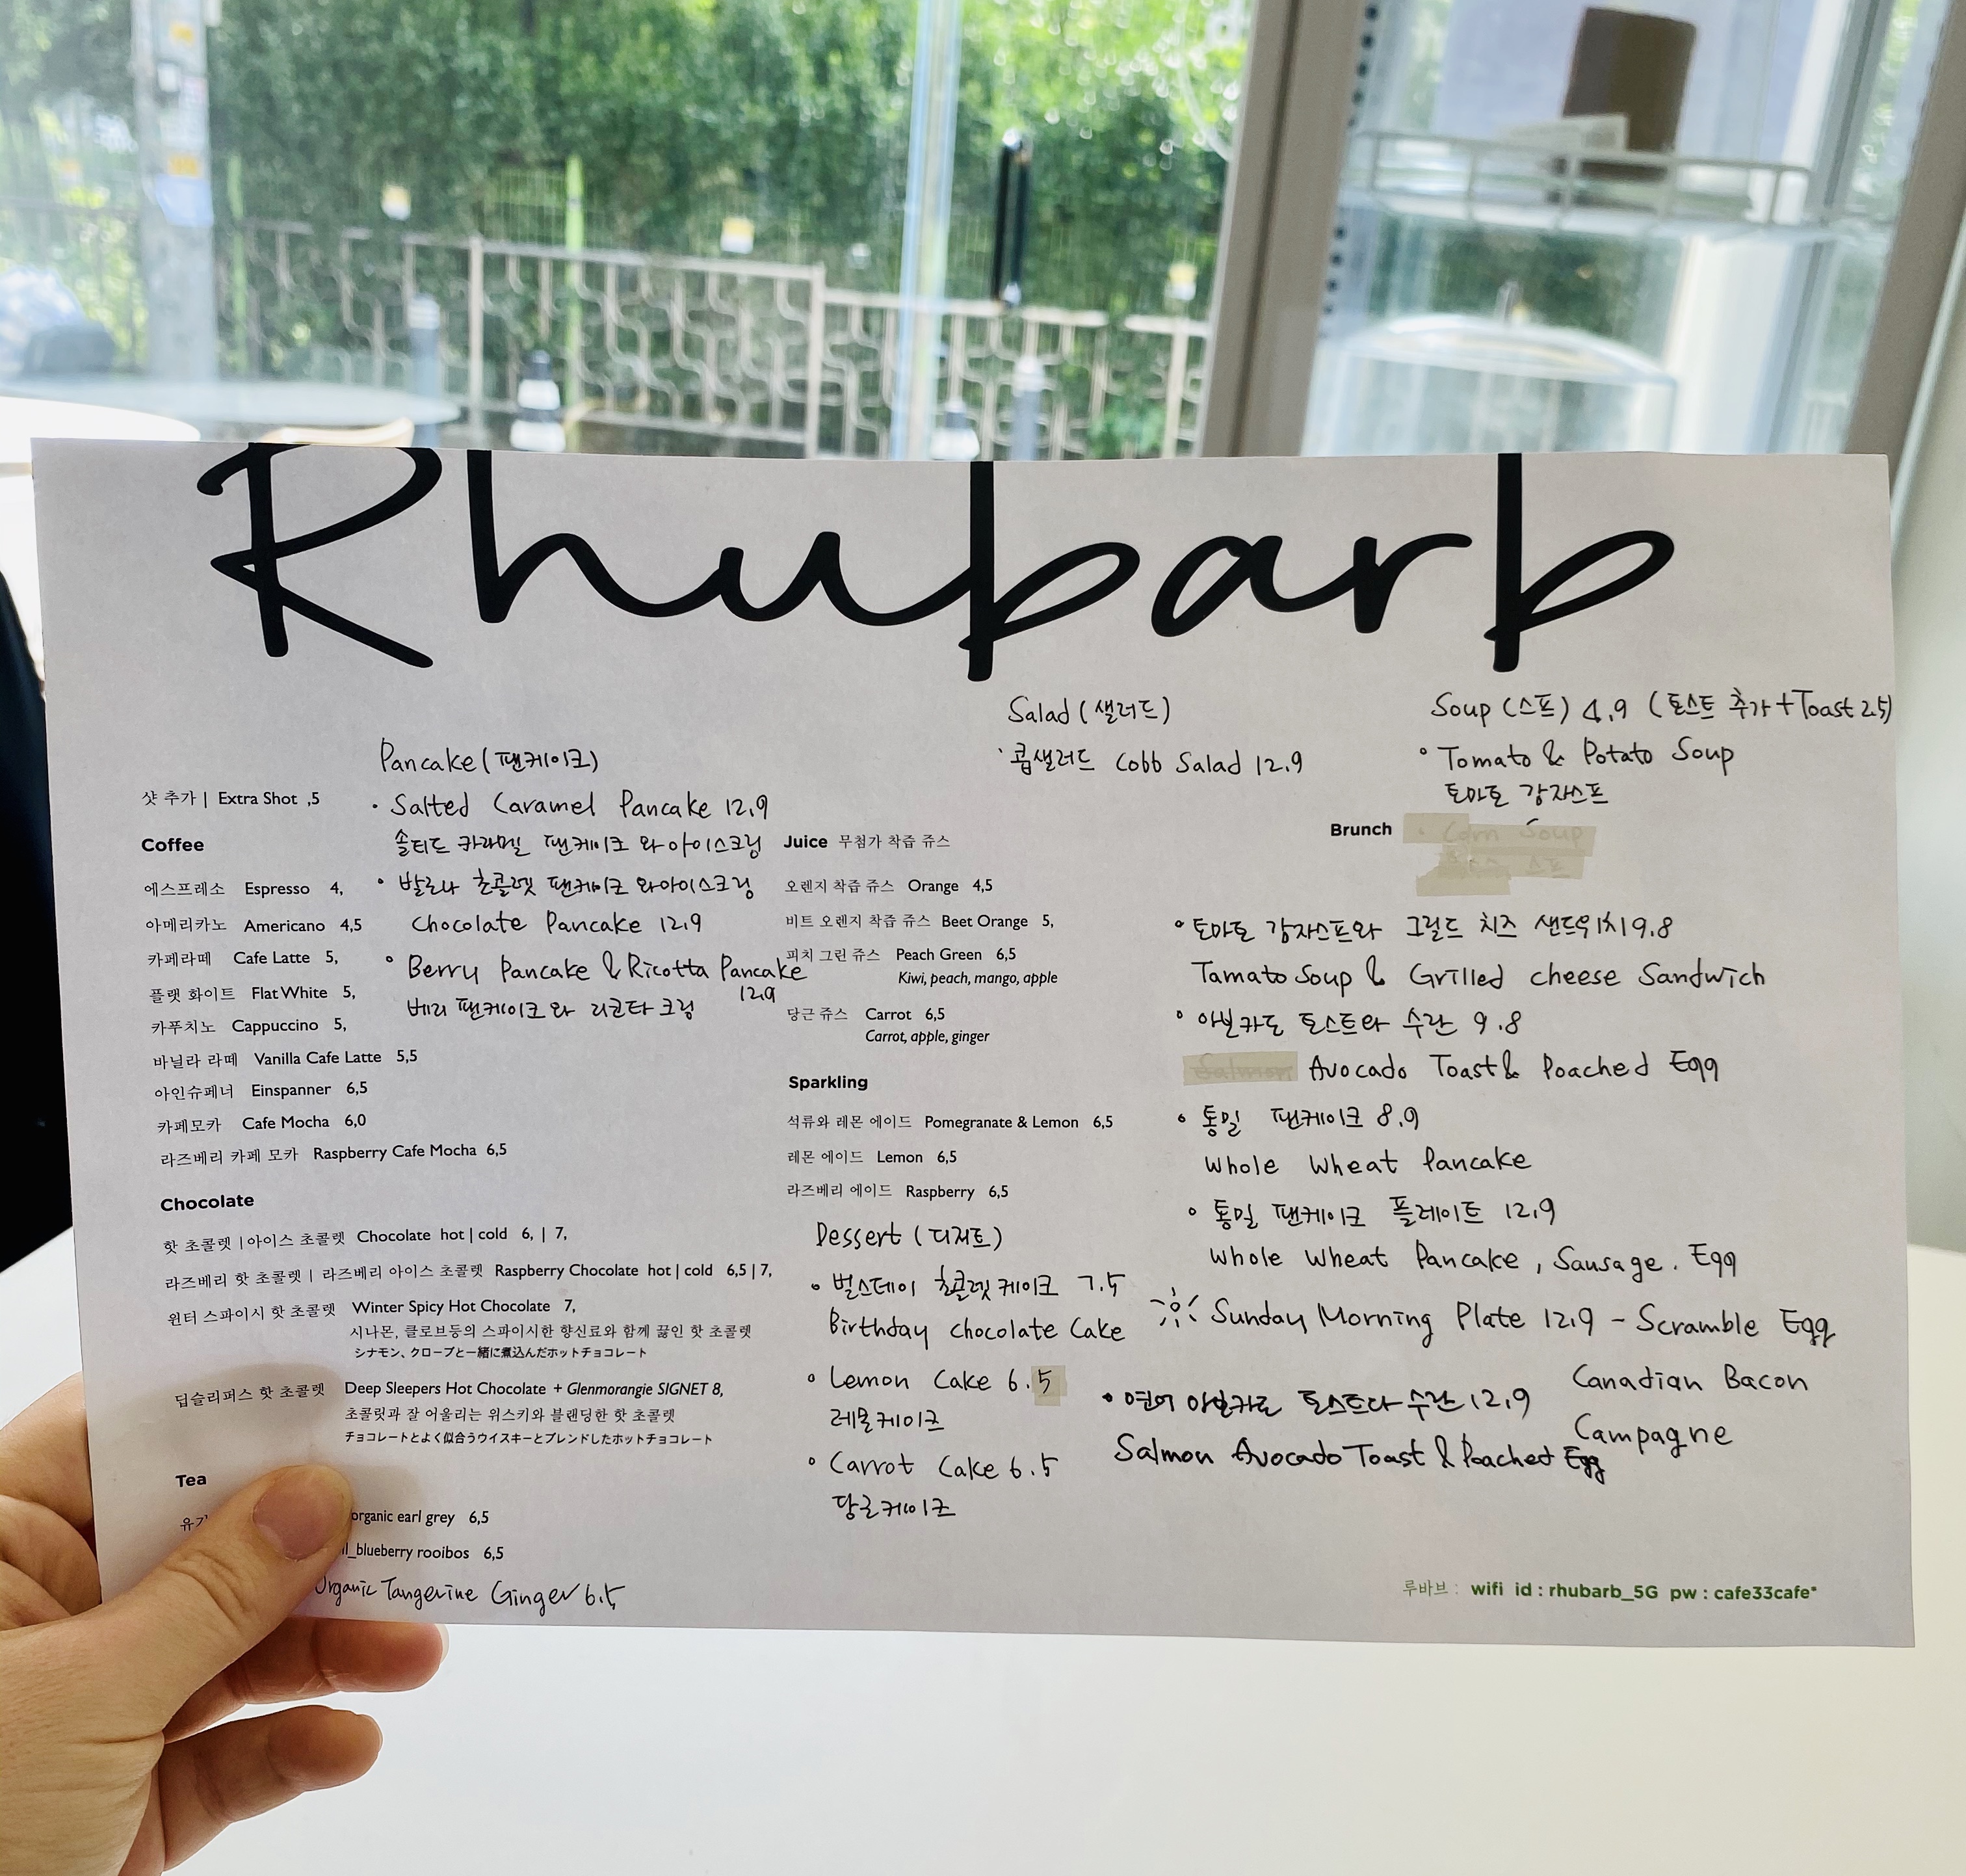 Rhubarb
샷 추가 | Extra Shot ,5
Coffee
에스프레소 Espresso 4,
아메리카노 Americano 4,5
카페라떼 Cafe Latte 5,
플랫 화이트 Flat White 5,
카푸치노 Cappuccino 5,
바닐라 라떼 Vanilla Cafe Latte 5,5
아인슈페너 Einspanner 6,5
카페모카 Cafe Mocha 6,0
라즈베리 카페 모카 Raspberry Cafe Mocha 6,5
Chocolate
핫 초콜렛 |아이스 초콜렛 Chocolate hot | cold 6, | 7,
라즈베리 핫 초콜렛 | 라즈베리 아이스 초콜렛 Raspberry Chocolate hot | cold 6,5 | 7,
윈터 스파이시 핫 초콜렛 Winter Spicy Hot Chocolate 7,
시나몬, 클로브등의 스파이시한 향신료와 함께 끓인 핫 초콜렛
シナモン、クローブと一緒に煮込んだホットチョコレート
딥슬리퍼스 핫 초콜렛 Deep Sleepers Hot Chocolate + Glenmorangie SIGNET 8,
초콜릿과 잘 어울리는 위스키와 블랜딩한 핫 초콜렛
チョコレートとよく似合うウイスキーとブレンドしたホットチョコレート
Tea
organic earl grey 6,5
blueberry rooibos 6,5
Organic Tangerine Ginger 6.5
Pancake (팬케이크)
· Salted Caramel Pancake 12.9
솔티드 카라멜 팬케이크 와 아이스크림
• 발로나 초콜렛 팬케이크 와아이스크림
Chocolate Pancake 12.9
• Berry Pancake & Ricotta Pancake
12.9
베리 팬케이크와 리코타 크림
Juice 무첨가 착즙 쥬스
오렌지 착즙 쥬스 Orange 4,5
비트 오렌지 착즙 쥬스 Beet Orange 5,
피치 그린 쥬스 Peach Green 6,5
Kiwi, peach, mango, apple
당근 쥬스 Carrot 6,5
Carrot, apple, ginger
Sparkling
석류와 레몬 에이드 Pomegranate & Lemon 6,5
레몬 에이드 Lemon 6,5
라즈베리 에이드 Raspberry 6,5
Dessert (디저트)
• 벌스데이 초콜렛케이크 7.5
Birthday chocolate Cake
• Lemon Cake 6.5
레몬케이크
• Carrot Cake 6.5
당근케이크
Salad (샐러드)
· 콥샐러드 Cobb Salad 12.9
Soup (스프) 4.9 (토스트 추가 + Toast 2.5)
• Tomato & Potato Soup
토마토 감자스프
Brunch · Corn Soup
스프
• 토마토 감자스프와 그릴드 치즈 샌드위치 9.8
Tamato Soup & Grilled cheese Sandwich
• 아보카도 토스트와 수란 9.8
Salmon Avocado Toast & Poached Egg
• 통밀 팬케이크 8.9
Whole Wheat Pancake
• 통밀 팬케이크 플레이트 12.9
Whole Wheat Pancake, Sausage. Egg
Sunday Morning Plate 12.9 - Scramble Egg
Canadian Bacon
Campagne
• 연어 아보카도 토스트다 수란 12.9
Salmon Avocado Toast & Poached Egg
루바브 : wifi id : rhubarb_5G pw : cafe33cafe*